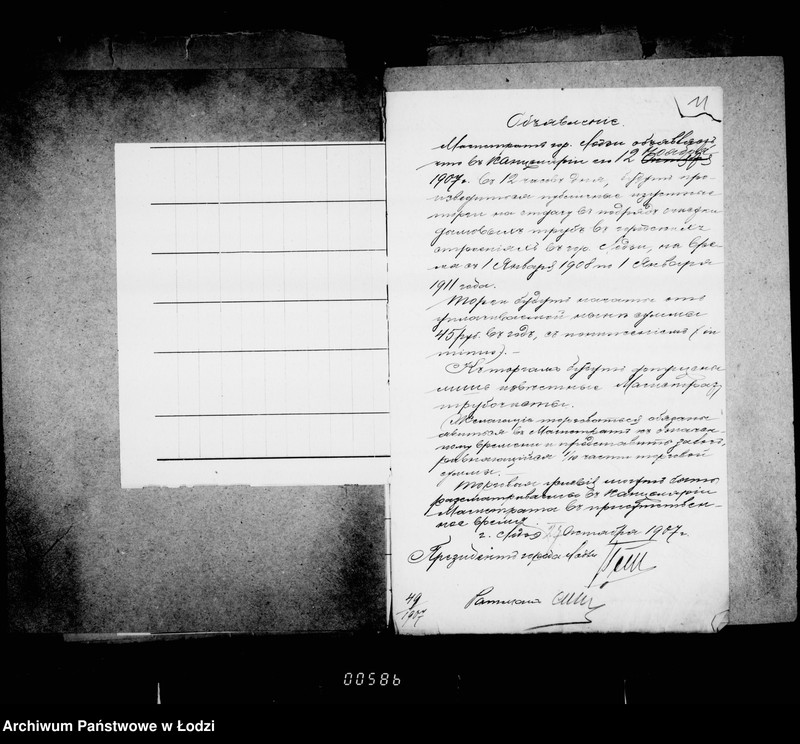 11
Объявленіе.
Магистратъ гр. Лодзи объявляетъ
что въ Канцеляріи его 12 Ноября Октября
1907 г. въ 12 часовъ дня, будутъ про-
изводиться публичные изустные
торги на отдачу въ подрядъ очистки
дымовыхъ трубъ въ городскихъ
строеніяхъ въ гор. Лодзи, на вре-
мя съ 1 Января 1908 по 1 Января
1911 года.
Торги будутъ начаты отъ
суммы
45 руб. въ годъ, съ пониженіемъ (in
minus). —
Къ торгамъ будутъ допущены
лишь извѣстные Магистрату
трубочисты.
Желающіе торговаться обязаны
явиться въ Магистратъ къ означен-
ному времени и представить залогъ,
равняющійся 1/10 части торговой
суммы. —
Торговыя условія могутъ быть
разсматриваемы въ Канцеляріи
Магистрата въ присутствен-
ное время.
г. Лодзь Октября 1907 г.
Президентъ города Лодзи
49
1907
Archiwum Państwowe w Łodzi
00586